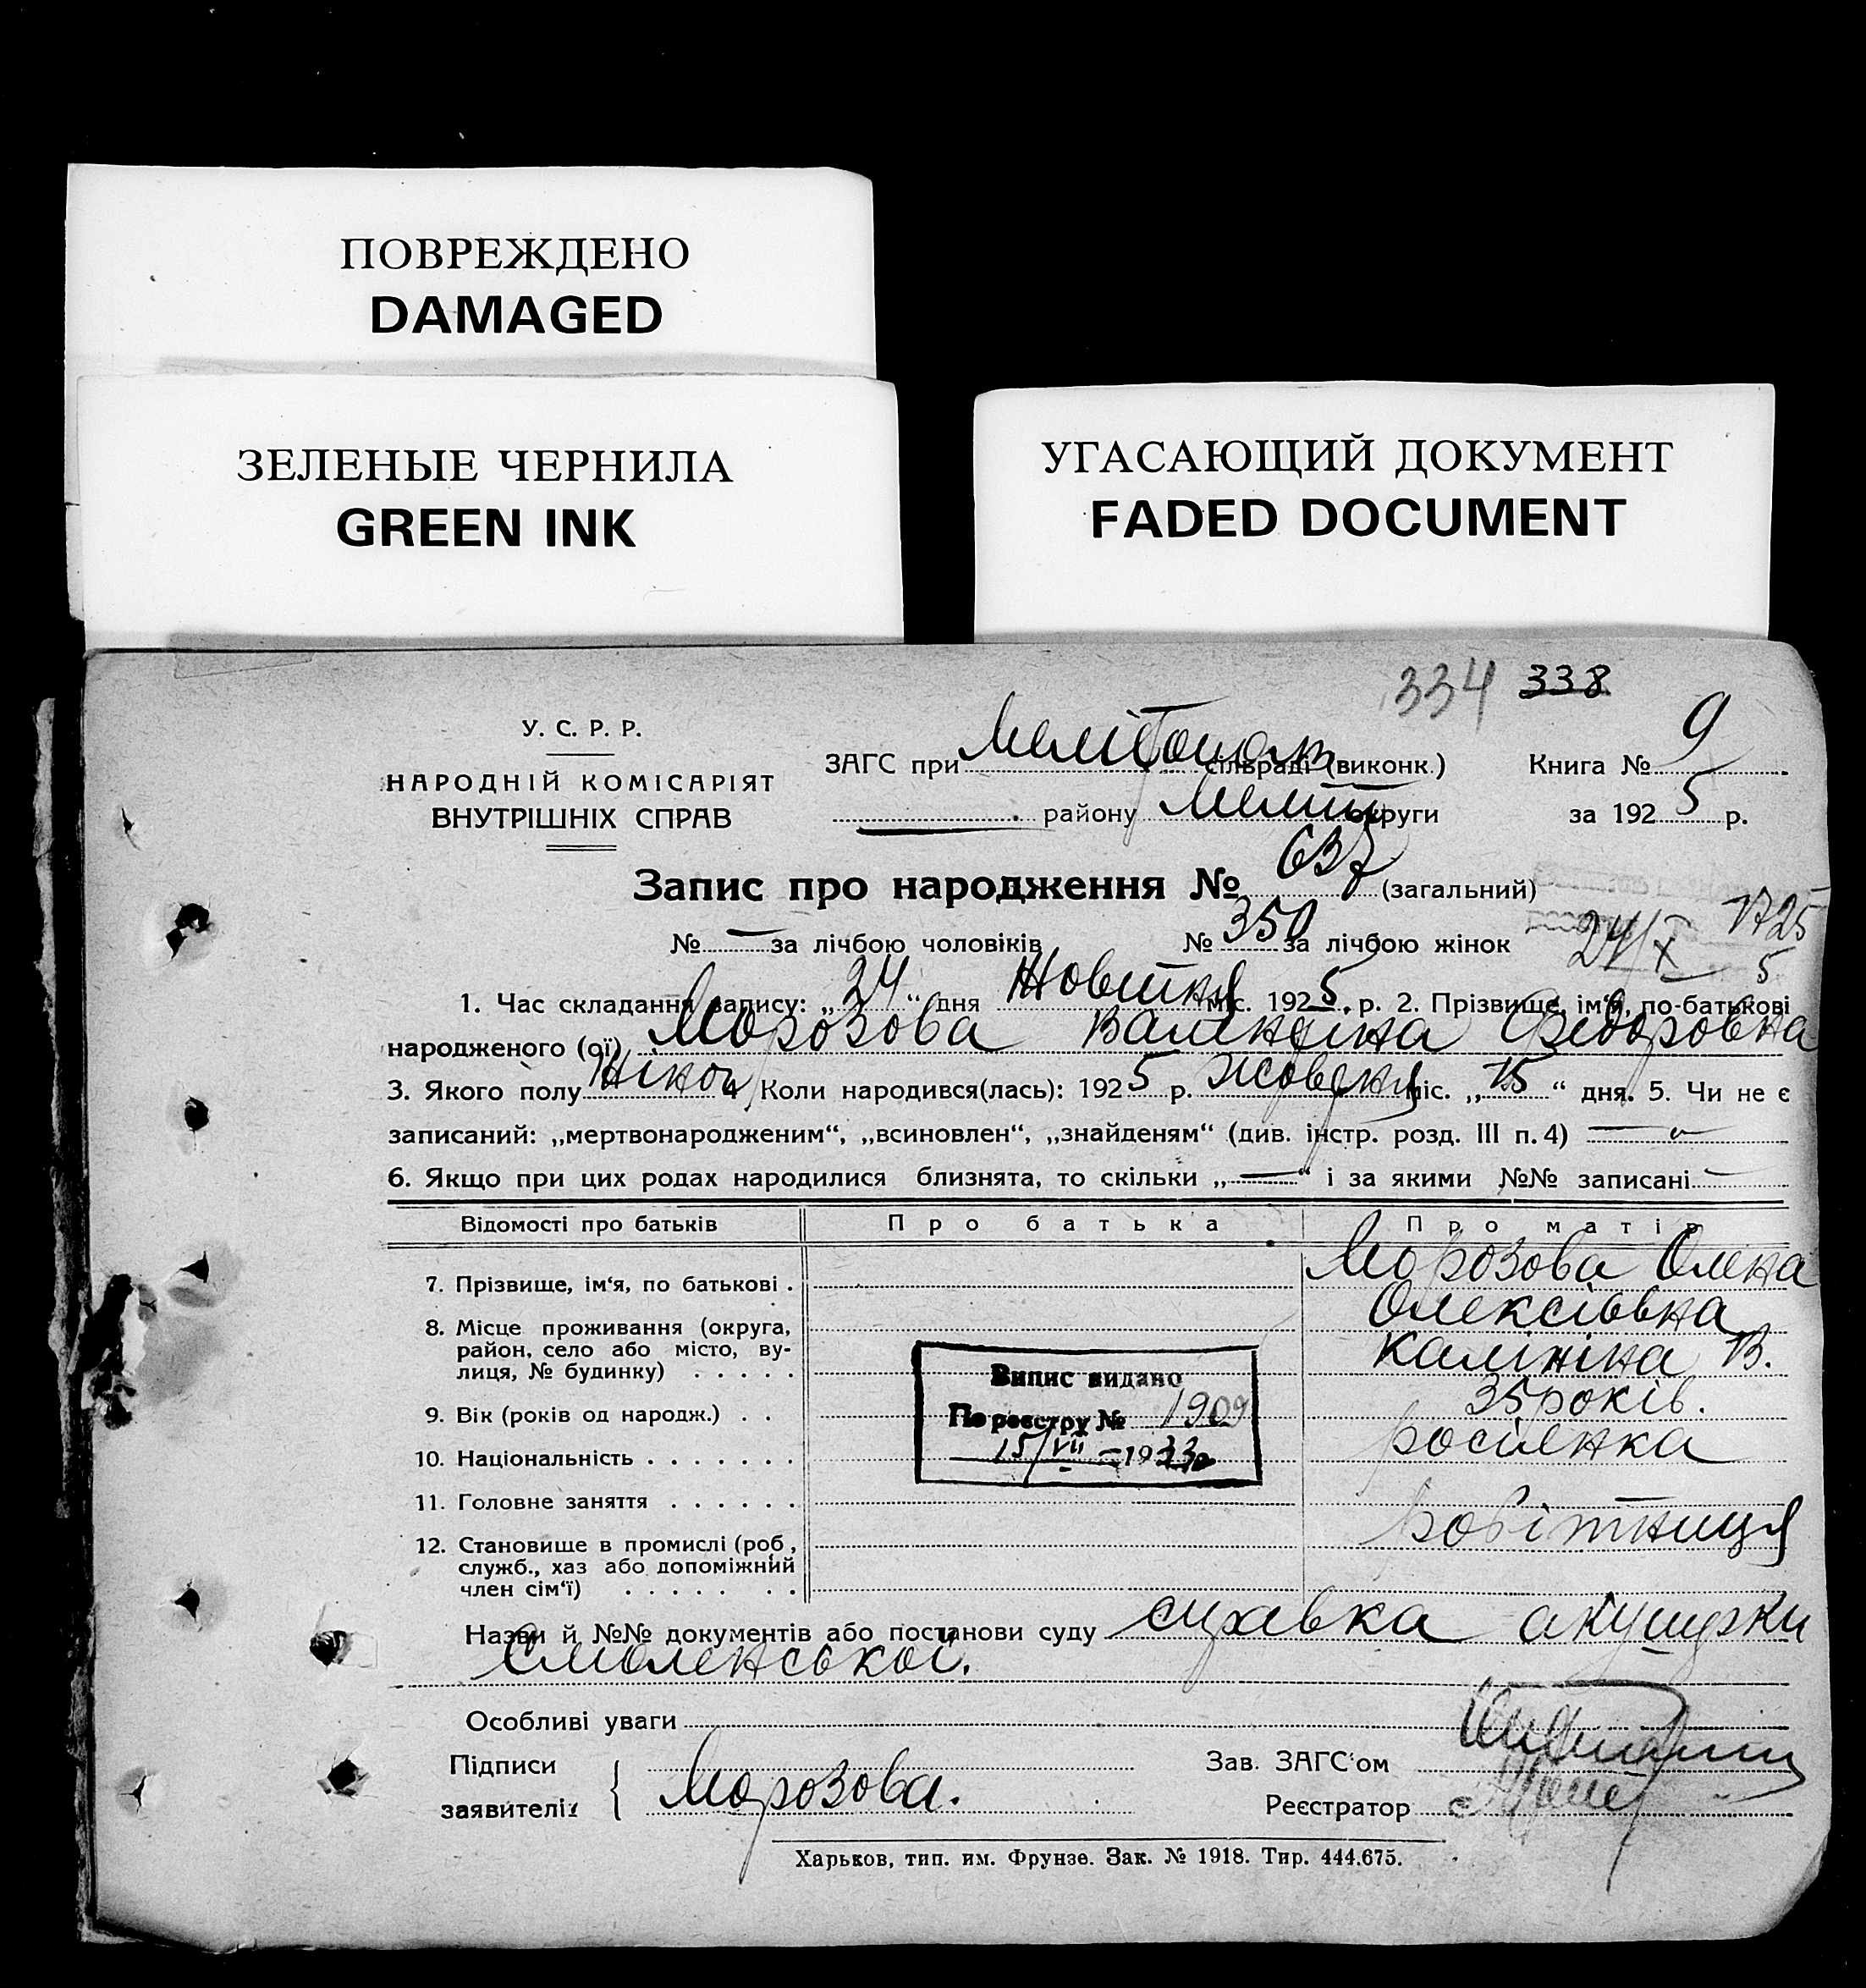 ПОВРЕЖДЕНО
DAMAGED
ЗЕЛЕНЫЕ ЧЕРНИЛА
GREEN INK
УГАСАЮЩИЙ ДОКУМЕНТ
FADED DOCUMENT
334 338
У. С. Р. Р.
НАРОДНІЙ КОМІСАРІЯТ
ВНУТРІШНІХ СПРАВ
ЗАГС при Мелітопол. сільраді (виконк.)
району Меліт округи
Книга № 9
за 1925 р.
Запис про народження № 637 (загальний)
№ — за лічбою чоловіків № 350 за лічбою жінок 24/X 1725
5
1. Час складання запису: „24“ дня Жовтня міс. 1925 р. 2. Прізвище, ім‘я, по-батькові
народженого (ої) Морозова Валендіна Федоровна
3. Якого полу жіноч 4 Коли народився(лась): 1925 р. жовдня міс. „15“ дня. 5. Чи не є
записаний: „мертвонародженим“, „всиновлен“, „знайденям“ (див. інстр. розд. III п. 4) —
6. Якщо при цих родах народилися близнята, то скільки „—“ і за якими №№ записані —
Відомості про батьків Про батька Про матір
7. Прізвище, ім‘я, по батькові . Морозова Олена
Олексіовна
8. Місце проживання (округа,
район, село або місто, ву-
лиця, № будинку) . . . . . Калініна 13.
9. Вік (років од народж.) . . 35 років.
10. Національність . . . . . . . росіянка
11. Головне заняття . . . . . .
12. Становище в промислі (роб,
служб., хаз або допоміжний
член сім‘ї) . . . . . . . робітниця
Випис видано
По реєстру № 1909
15/VII — 1933р
Назви й №№ документів або постанови суду справка акушерки
Смоленської.
Особливі уваги
Підписи
заявителів { Морозова.
Зав. ЗАГС‘ом
Реєстратор
Харьков, тип. им. Фрунзе. Зак. № 1918. Тир. 444.675.